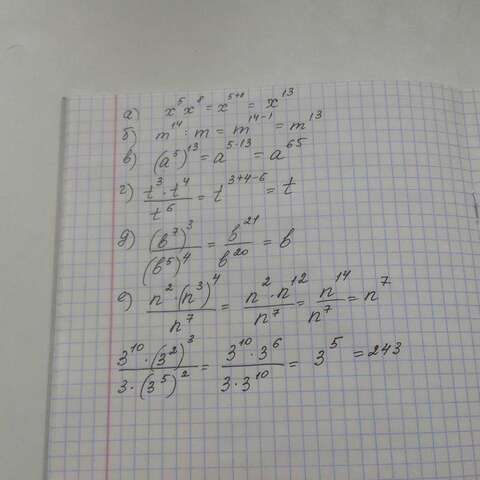 а) x⁵x⁸ = x⁵⁺⁸ = x¹³
б) m¹⁴ : m = m¹⁴⁻¹ = m¹³
в) (a⁵)¹³ = a⁵·¹³ = a⁶⁵
г) t³·t⁴ / t⁶ = t³⁺⁴⁻⁶ = t
д) (b⁷)³ / (b⁵)⁴ = b²¹ / b²⁰ = b
е) n²·(n³)⁴ / n⁷ = n²·n¹² / n⁷ = n¹⁴ / n⁷ = n⁷
3¹⁰·(3²)³ / 3·(3⁵)² = 3¹⁰·3⁶ / 3·3¹⁰ = 3⁵ = 243